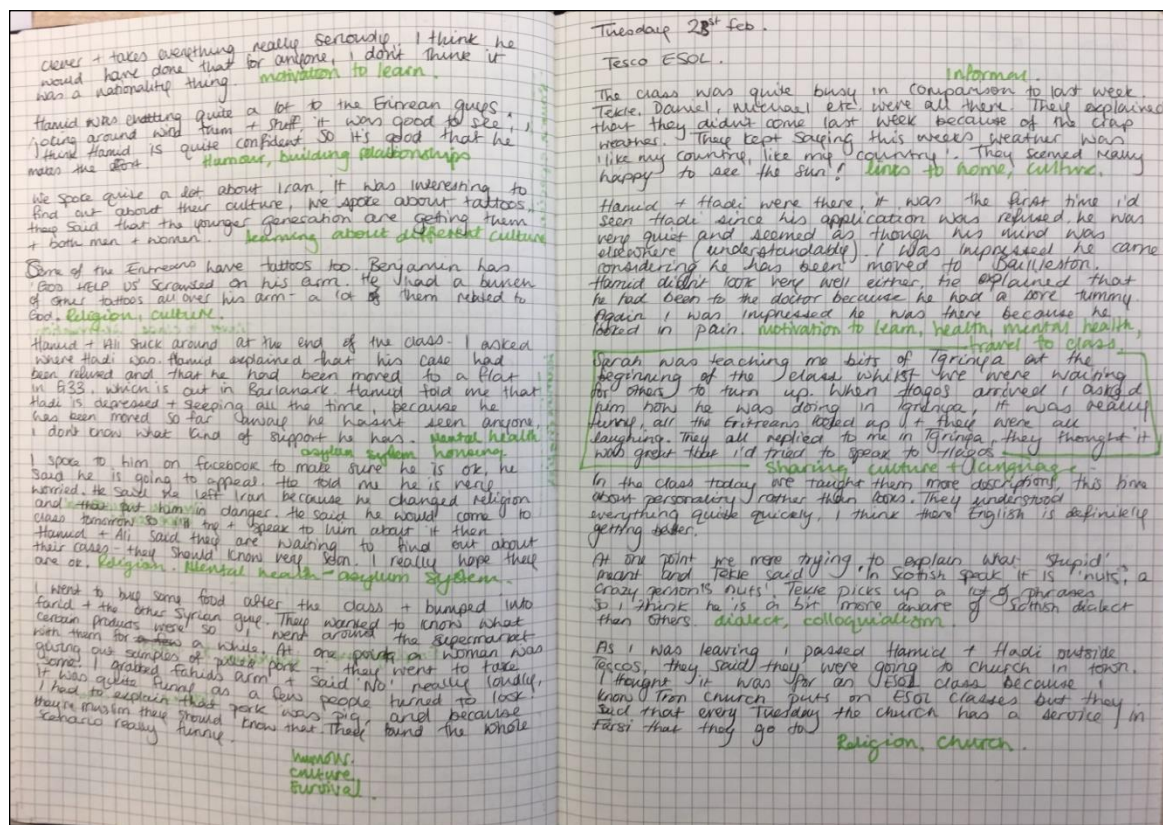 clever + takes everything really seriously. I think he
would have done that for anyone, I don't think it
was a nationality thing. motivation to learn.
Hamid was chatting quite a lot to the Eritrean guys,
joking around with them + stuff it was good to see, I
think Hamid is quite confident so it's good that he
makes the effort. Humour, building relationships
We spoke quite a lot about Iran, it was interesting to
find out about their culture, we spoke about tattoos,
they said that the younger generation are getting them
+ both men + women. learning about different culture
Some of the Eritreans have tattoos too. Benjamin has
'GOD HELP US' scrawled on his arm. He had a bunch
of other tattoos all over his arm - a lot of them related to
God. Religion, culture.
Hamid + Ali stuck around at the end of the class - I asked
where Hadi was. Hamid explained that his case had
been refused and that he had been moved to a flat
in G33, which is out in Barlanark. Hamid told me that
Hadi is depressed + sleeping all the time, because he
has been moved so far away he hasn't seen anyone,
I don't know what kind of support he has. Mental health
asylum system housing
I spoke to him on facebook to make sure he is ok, he
said he is going to appeal. He told me he is very
worried. He said he left Iran because he changed religion
and that put him in danger. He said he would come to
class tomorrow so I'll try + speak to him about it then
Hamid + Ali said they are waiting to find out about
their cases - they should know very soon. I really hope they
are ok. Religion. Mental health - asylum system.
I went to buy some food after the class + bumped into
farid + the other Syrian guy. They wanted to know what
certain products were so I went around the supermarket
with them for a while. At one point a woman was
giving out samples of pulled pork + they went to take
some. I grabbed fahids arm + said 'No' really loudly,
it was quite funny as a few people turned to look
I had to explain that pork was pig, and because
they're muslim they should know that. They found the whole
scenario really funny.
humour.
culture
Survival.
Tuesday 28st feb.
Tesco ESOL.
Informal.
The class was quite busy in comparison to last week.
Tekle, Daniel, Michael etc. were all there. They explained
that they didn't come last week because of the crap
weather. They kept saying this weeks weather was
'like my country, like my country'. They seemed really
happy to see the sun! links to home, culture.
Hamid + Hadi were there, it was the first time I'd
seen Hadi since his application was refused. he was
very quiet and seemed as though his mind was
elsewhere (understandably). I was impressed he came
considering he has been moved to Baillieston.
Hamid didn't look very well either, he explained that
he had been to the doctor because he had a sore tummy.
Again I was impressed he was there because he
looked in pain. motivation to learn, health, mental health,
travel to class.
Sarah was teaching me bits of Tgrinya at the
beginning of the class whilst we were waiting
for others to turn up. When Hagos arrived I asked
him how he was doing in Tgrinya, it was really
funny, all the Eritreans looked up + they were all
laughing. They all replied to me in Tgrinya, they thought it
was great that I'd tried to speak to Hagos.
Sharing culture + language
In the class today we taught them more descriptions, this time
about personality rather than looks. They understood
everything quite quickly, I think there English is definitely
getting better.
At one point we were trying to explain what 'stupid'
meant and Tekle said 'In Scottish speak it is 'nuts', a
crazy person is nuts'. Tekle picks up a lot of phrases
so I think he is a bit more aware of Scottish dialect
than others. dialect, colloquialism.
As I was leaving I passed Hamid + Hadi outside
Tescos, they said they were going to church in town.
I thought it was for an ESOL class because I
know Tron church puts on ESOL classes but they
said that every Tuesday the church has a service in
Farsi that they go to
Religion. Church.